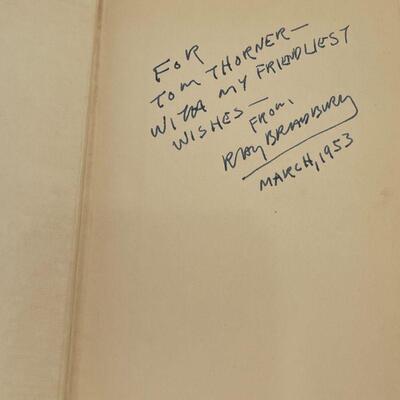 FOR
TOM THORNER—
WITH MY FRIENDLIEST
WISHES—
FROM,
RAY BRADBURY
MARCH, 1953